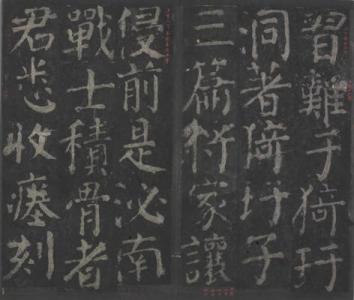 習難于猗玗
洞著猗玗子
三篇家讓
侵前是泌南
戰士積骨者
君悉收瘞刻